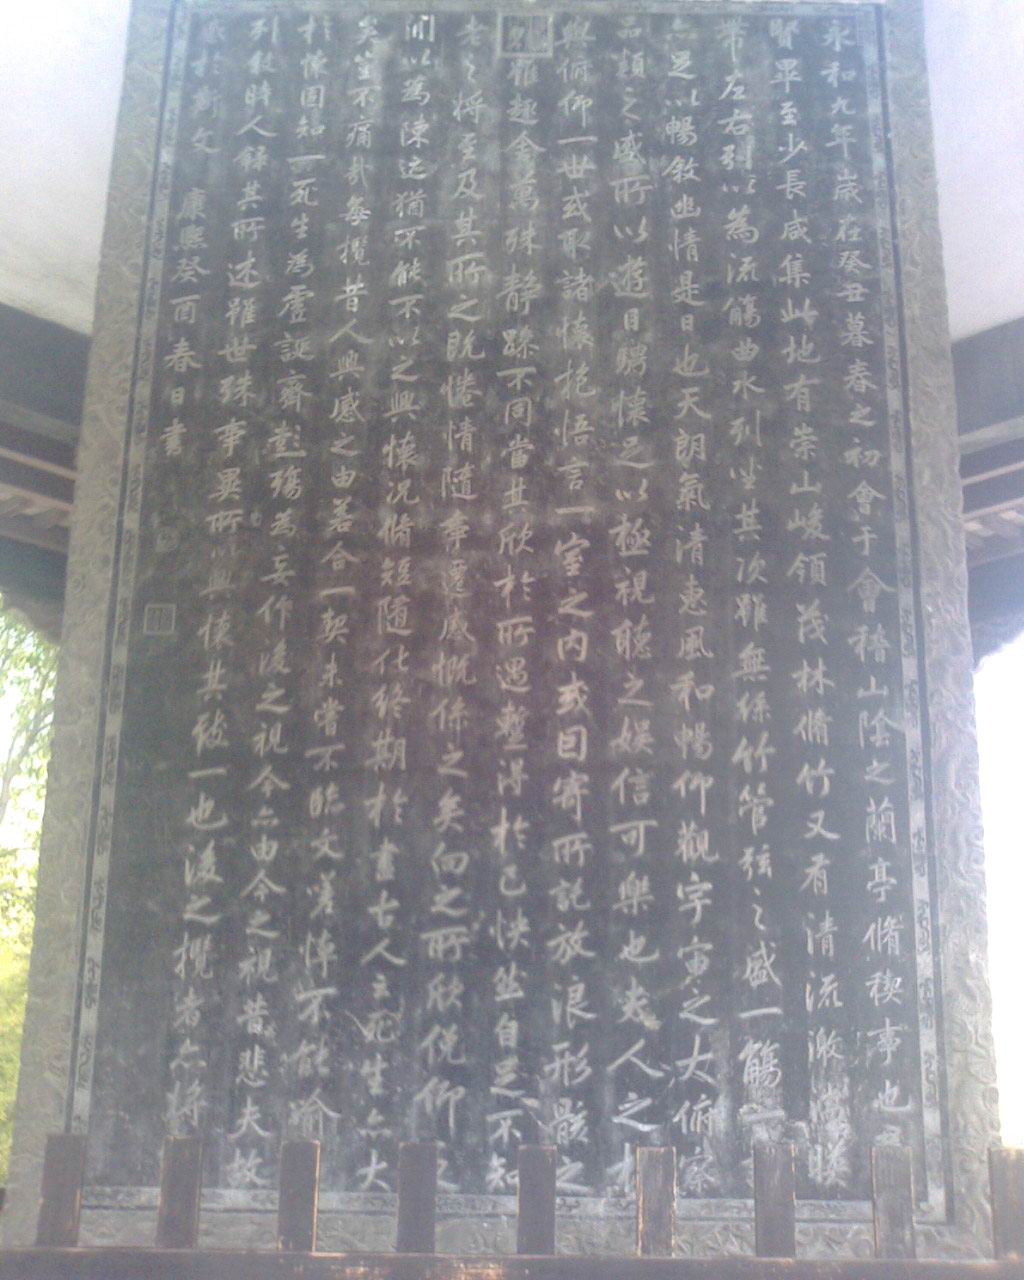 永和九年歲在癸丑暮春之初會于會稽山陰之蘭亭脩稧事也
賢畢至少長咸集此地有崇山峻領茂林脩竹又有清流激
帶左右引以為流觴曲水列坐其次雖無絲竹管弦之盛一觴一
亦足以暢敘幽情是日也天朗氣清惠風和暢仰觀宇宙之大俯察
品類之盛所以遊目騁懷足以極視聽之娛信可樂也夫人之
與俯仰一世或取諸懷抱悟言一室之內或因寄所託放浪形骸之
雖趣舍萬殊靜躁不同當其欣於所遇蹔得於己快然自足不知
老之將至及其所之既惓情隨事遷感慨係之矣向之所欣俛仰之
間以為陳迹猶不能不以之興懷況脩短隨化終期於盡古人云死生亦大
矣豈不痛哉每攬昔人興感之由若合一契未嘗不臨文嗟悼不能喻
於懷固知一死生為虛誕齊彭殤為妄作後之視今亦由今之視昔悲夫故
列敘時人錄其所述雖世殊事異所以興懷其致一也後之攬者亦將
感於斯文 康熙癸酉春日書